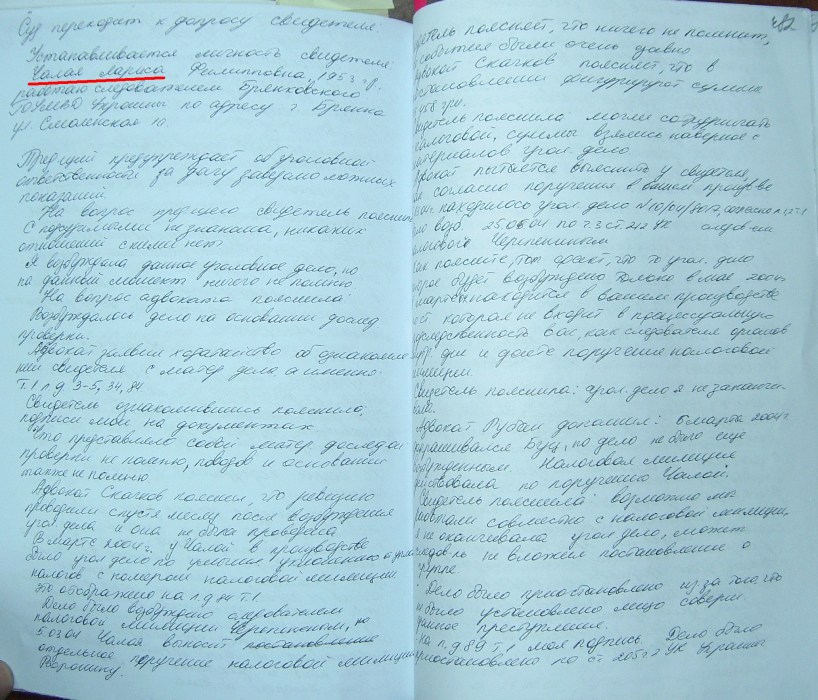 Суд переходит к допросу свидетеля:
Устанавливается личность свидетеля:
Чалая Лариса Филипповна, 1953 г.р.
работаю следователем Брянковского
ГОУМВД Украины по адресу г. Брянка
ул. Смоленская 10.
Пред-щий предупреждает об уголовной
ответственности за дачу заведомо ложных
показаний
На вопрос пред-щего свидетель пояснил
С подсудимыми не знакома, никаких
отношений с ними нет
Я возбуждала данное уголовное дело, но
на данный момент ничего не помню
На вопрос адвоката пояснила:
Возбуждалось дело на основании дослед
проверки.
Адвокат заявил ходатайство об ознакомле
нии свидетеля с матер. дела а именно:
Т.1 л.д 3-5, 34, 84
Свидетель ознакомившись пояснила,
подписи мои на документах.
Что представляло собой матер. доследст
проверки не помню, поводов и оснований
также не помню
Адвокат Скачков пояснил, что ревизию
проводили спустя месяц после возбуждения
угол дела и она не была проведена
В марте 2004 г. у Чалой в производстве
было угол дело по
налогов с номером налоговой милиции.
это отображено на л.д 84 Т.1
Дело было возбуждено следователем
налоговой милиции Черепениным, но
5.03.04 Чалая выносит постановление
отдельное поручение налоговой милиции
Воронину.
482
свидетель поясняет, что ничего не помнит,
события были очень давно
Адвокат Скачков поясняет, что в
постановлении фигурирует сумма
грн.
Свидетель пояснила могли сотрудничать
налоговой, суммы взялись наверное с
материалов угол. дела
Адвокат пытается выяснить у свидетеля,
согласно поручения в вашем произв-ве
находилось угол. дело
возб. 25.05.04 по ч.3 ст 212 УК
налоговой Черепениным
Как поясните, тот факт, что то угол. дело
будет возбуждено только в мае 2004 г
в марте находится в вашем производстве
ст. которая не входит в процессуальную
подследственность вас, как следователя органов
и даете поручение налоговой
милиции.
Свидетель пояснила: угол. дело я не заканчи
вала.
Адвокат Рубан дополнил: 5 марта 2004 г
допрашивался Буц, но дело не было еще
возбужденным. Налоговая милиция
действовала по поручению Чалой.
Свидетель пояснила: возможно мы
работали совместно с налоговой милицией,
я не оканчивала угол дело, может
следов-ль не вложил постановление о
группе.
Дело было приостановлено из за того что
не было установлено лицо соверш.
данное преступление.
На л.д 89 Т.1 моя подпись Дело было
приостановлено по ст 206 УК Украины